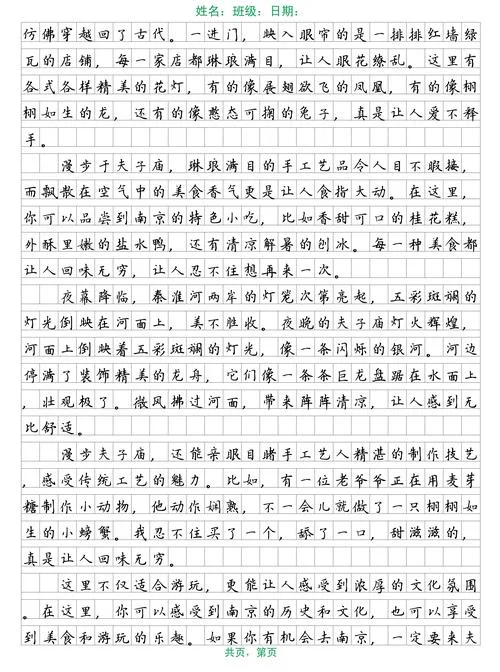 姓名：班级：日期：
仿佛穿越回了古代。一进门，映入眼帘的是一排排红墙绿
瓦的店铺，每一家店都琳琅满目，让人眼花缭乱。这里有
各式各样精美的花灯，有的像展翅欲飞的凤凰，有的像栩
栩如生的龙，还有的像憨态可掬的兔子，真是让人爱不释
手。
漫步于夫子庙，琳琅满目的手工艺品令人目不暇接，
而飘散在空气中的美食香气更是让人食指大动。在这里，
你可以品尝到南京的特色小吃，比如香甜可口的桂花糕，
外酥里嫩的盐水鸭，还有清凉解暑的刨冰。每一种美食都
让人回味无穷，让人忍不住想再来一次。
夜幕降临，秦淮河两岸的灯笼次第亮起，五彩斑斓的
灯光倒映在河面上，美不胜收。夜晚的夫子庙灯火辉煌，
河面上倒映着五彩斑斓的灯光，像一条闪烁的银河。河边
停满了装饰精美的龙舟，它们像一条条巨龙盘踞在水面上
，壮观极了。微风拂过河面，带来阵阵清凉，让人感到无
比舒适。
漫步夫子庙，还能亲眼目睹手工艺人精湛的制作技艺
，感受传统工艺的魅力。比如，有一位老爷爷正在用麦芽
糖制作小动物，他动作娴熟，不一会儿就做了一只栩栩如
生的小螃蟹。我忍不住买了一个，舔了一口，甜滋滋的，
真是让人回味无穷。
这里不仅适合游玩，更能让人感受到浓厚的文化氛围
。在这里，你可以感受到南京的历史和文化，也可以享受
到美食和游玩的乐趣。如果你有机会去南京，一定要来夫
共页，第页